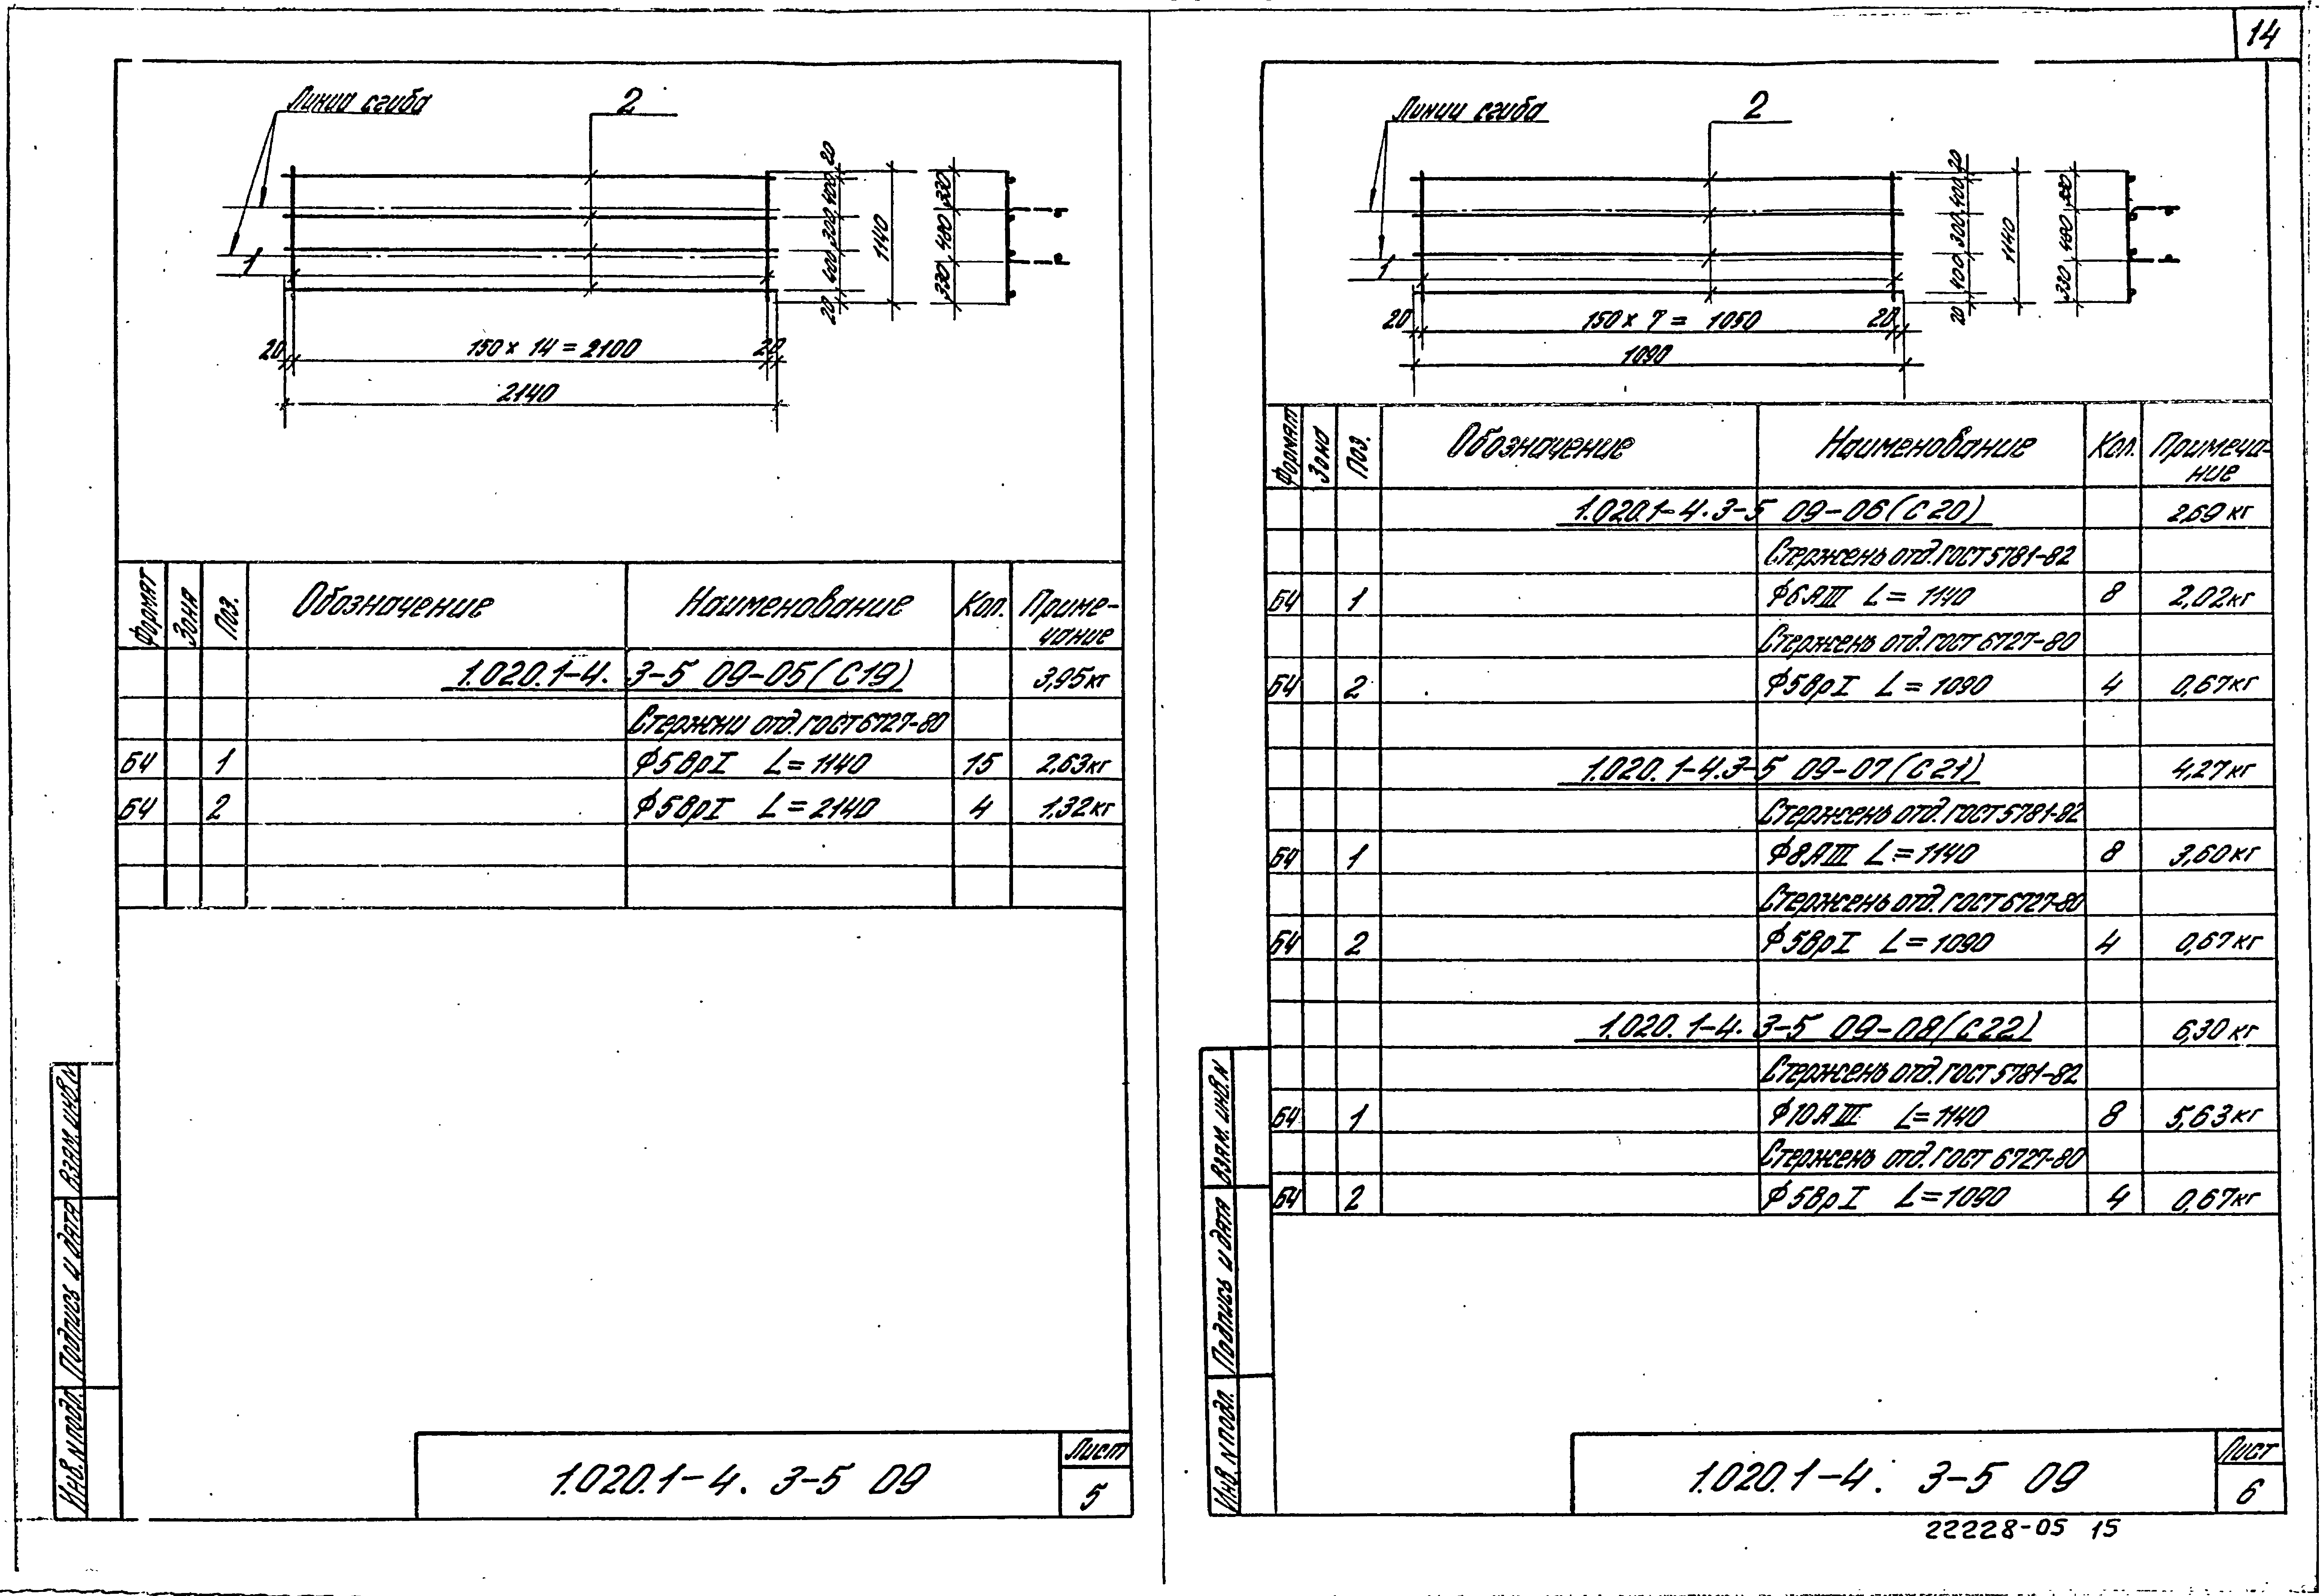 14
Линии сгиба
2
1
20
400
300
400
20
1140
330
480
330
20
150 x 14 = 2100
20
2140
Формат Зона Поз. Обозначение Наименование Кол. Приме-
чание
1.020.1-4. 3-5 09-05 (С19) 3,95кг
Стержни отд. ГОСТ 6727-80
БЧ 1 Ф5ВрI L=1140 15 2,63кг
БЧ 2 Ф5ВрI L=2140 4 1,32кг
Инв. N подл. Подпись и дата Взам. инв. N
1.020.1-4. 3-5 09
Лист
5
Линии сгиба
2
1
20
400
300
400
20
1140
330
480
330
20
150 x 7 = 1050
20
1090
Формат Зона Поз. Обозначение Наименование Кол. Примеча-
ние
1.020.1-4.3-5 09-06 (С20) 2,69 кг
Стержень отд. ГОСТ 5781-82
БЧ 1 Ф6АIII L=1140 8 2,02кг
Стержень отд. ГОСТ 6727-80
БЧ 2 Ф5ВрI L=1090 4 0,67кг
1.020.1-4.3-5 09-07 (С21) 4,27кг
Стержень отд. ГОСТ 5781-82
БЧ 1 Ф8АIII L=1140 8 3,60кг
Стержень отд. ГОСТ 6727-80
БЧ 2 Ф5ВрI L=1090 4 0,67кг
1.020.1-4. 3-5 09-08 (С22) 6,30 кг
Стержень отд. ГОСТ 5781-82
БЧ 1 Ф10АIII L=1140 8 5,63кг
Стержень отд. ГОСТ 6727-80
БЧ 2 Ф5ВрI L=1090 4 0,67кг
Инв. N подл. Подпись и дата Взам. инв. N
1.020.1-4. 3-5 09
Лист
6
22228-05 15